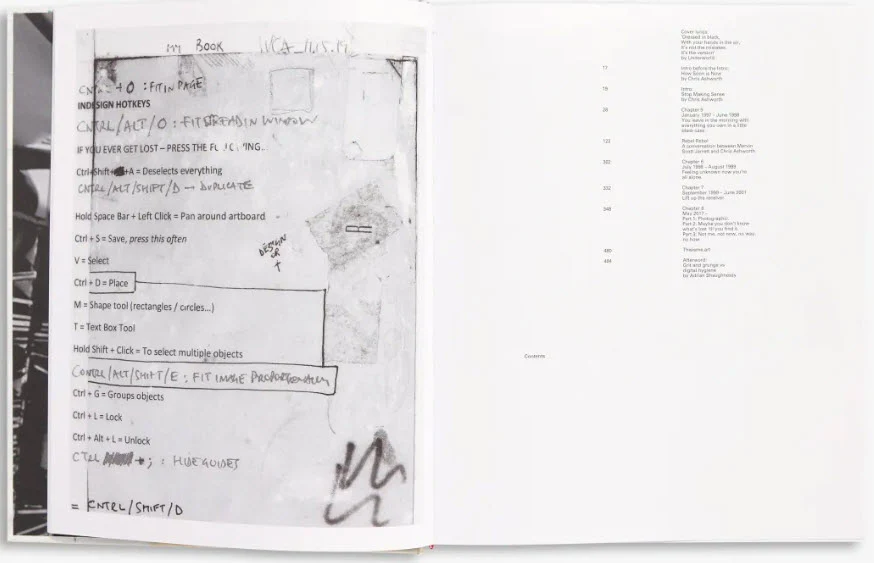 MY BOOK
CNTRL + O : FIT IN PAGE
INDESIGN HOTKEYS
CNTRL/ALT/O : FIT SPREAD IN WINDOW
IF YOU EVER GET LOST – PRESS THE
Ctrl+Shift+A = Deselects everything
CNTRL/ALT/SHIFT/D → DUPLICATE
Hold Space Bar + Left Click = Pan around artboard
Ctrl + S = Save, press this often
DESIGN
V = Select
Ctrl + D = Place
M = Shape tool (rectangles / circles...)
T = Text Box Tool
Hold Shift + Click = To select multiple objects
CONTRL/ALT/SHIFT/E : FIT IMAGE PROPORTIONALLY
Ctrl + G = Groups objects
Ctrl + L = Lock
Ctrl + Alt + L = Unlock
CTRL + ; : HIDE GUIDES
= CNTRL/SHIFT/D
Cover lyrics:
Dressed in black,
With your hands in the air,
It's not the mistakes
by Underworld
17 Intro before the Intro:
How Soon is Now
by Chris Ashworth
Intro:
Stop Making Sense
by Chris Ashworth
Chapter 5
January 1997 – June 1998
You leave in the morning with
everything you own in a little
black case
A conversation between Marvin
Scott Jarrett and Chris Ashworth
Chapter 6
July 1998 – August 1999
Feeling unknown now you're
all alone
Chapter 7
September 1999 – June 2001
Lift up the receiver
Chapter 8
Part 1: Photographic
Part 2: Maybe you don't know
what's lost 'til you find it
Part 3: Not me, not now, no way,
no how
Afterword:
Grit and grunge vs
digital hygiene
by Adrian Shaughnessy
Contents